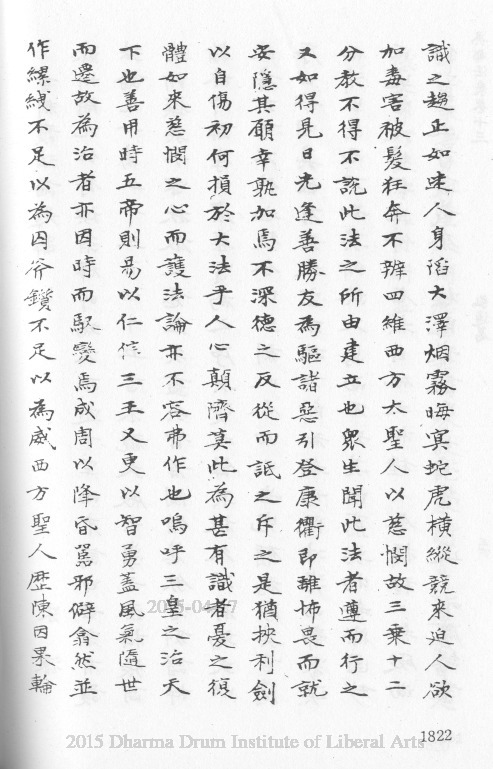 識之趨正如迷人身陷大澤烟霧晦冥蛇虎橫縱競來迫人欲
加毒害被髮狂奔不辨四維西方大聖人以慈憫故三乘十二
分教不得不說此法之所由建立也眾生聞此法者遵而行之
又如得見日光逢善勝友為驅諸惡引登康衢即離怖畏而就
安隱其願幸孰加焉不深德之反從而詆之斥之是猶挾利劍
以自傷初何損於大法乎人心顛隮莫此為甚有識者憂之復
體如來慈憫之心而護法論亦不容弗作也嗚呼三皇之治天
下也善用時五帝則易以仁信三王又更以智勇蓋風氣隨世
而遷故為治者亦因時而馭變焉成周以降昏嚚邪僻翕然並
作縲絏不足以為囚斧鑕不足以為威西方聖人歷陳因果輪
1822
2015 Dharma Drum Institute of Liberal Arts